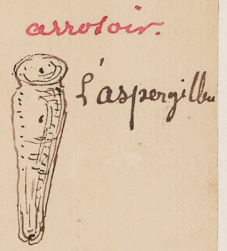 arrosoir.
l'aspergillu